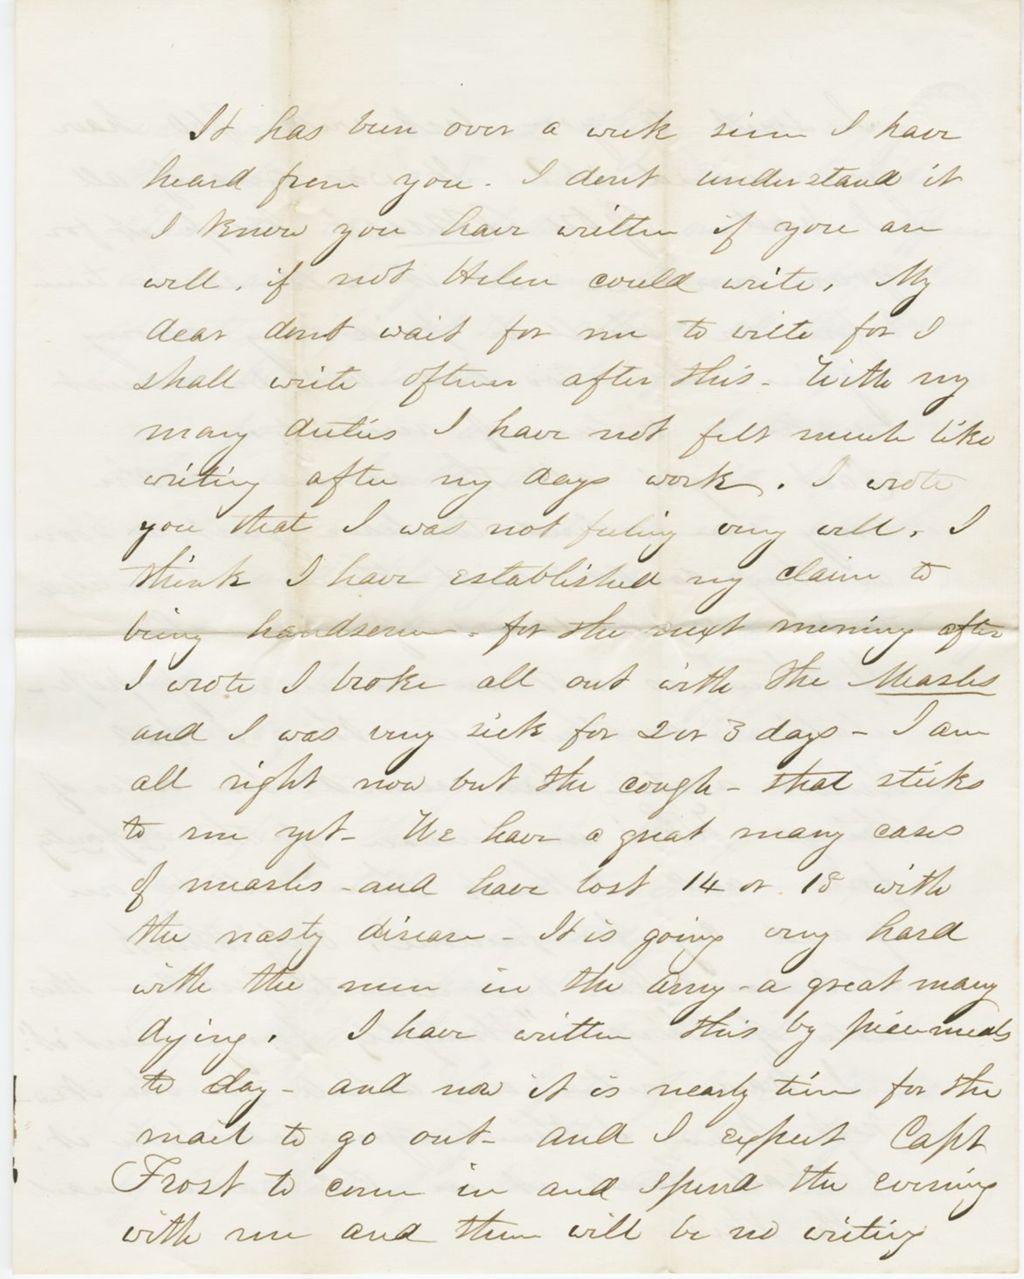 It has been over a week since I have
heard from you. I dont understand it
I know you have written if you are
well, if not Helen could write. My
dear dont wait for me to write for I
shall write oftener after this - With my
many duties I have not felt much like
writing after my days work. I wrote
you that I was not feeling very well. I
think I have established my claim to
being handsome - for the next morning after
I wrote I broke all out with the Measles
and I was very sick for 2 or 3 days - I am
all right now but the cough - that sticks
to me yet - We have a great many cases
of measles - and have lost 14 or 18 with
the nasty disease - It is going very hard
with the men in the army - a great many
dying. I have written this by piecemeals
to day - and now it is nearly time for the
mail to go out - and I expect Capt
Frost to come in and spend the evening
with me and there will be no writing